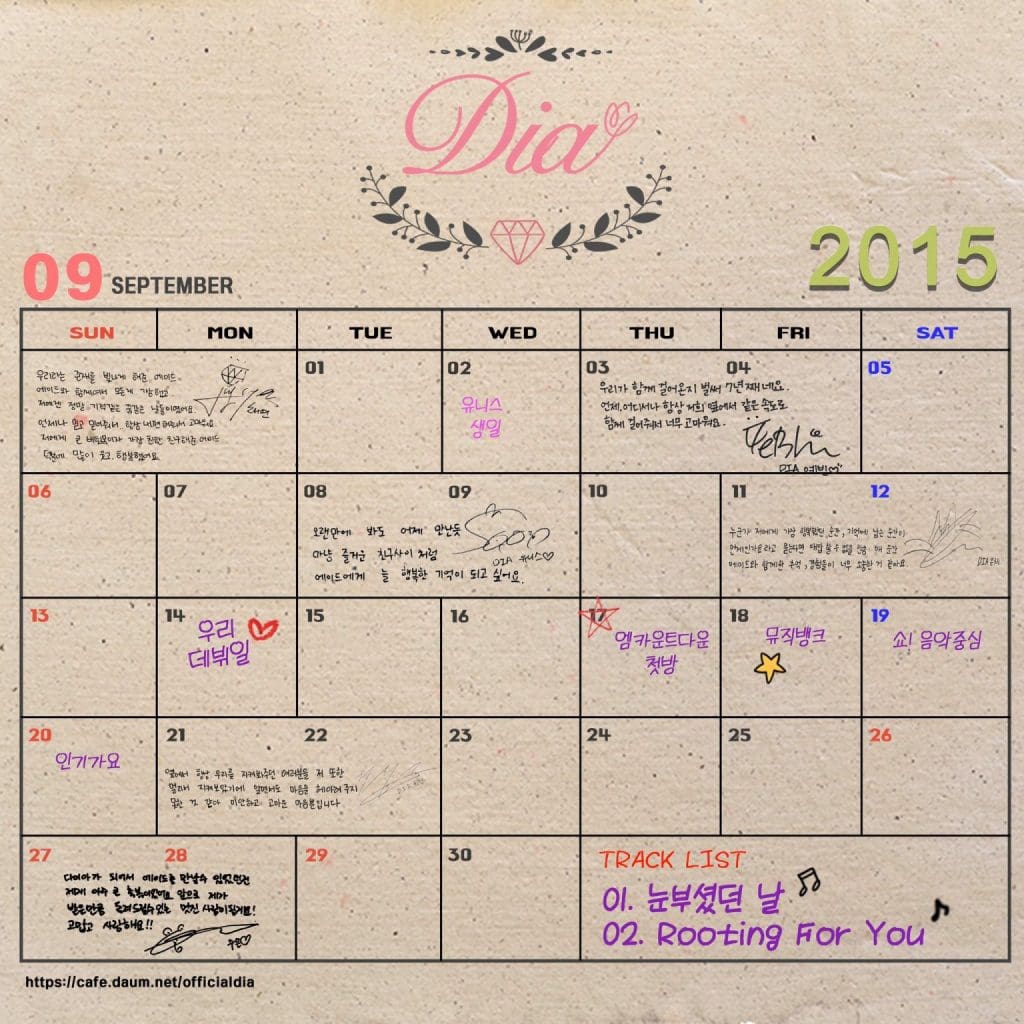 Dia
2015
09 SEPTEMBER
SUN MON TUE WED THU FRI SAT
우리라는 존재를 빛나게 해준 에이드.
에이드와 함께여서 모든게 가능했고
저에겐 정말 기적같은 순간은 날들이였어요.
언제나 믿고 믿어주시 항상 내편 해줘서 고마워요
저에게 큰 버팀목이자 가장 친한 친구해준 에이드
덕분에 많이 웃고, 행복했어요.
01
02
유니스
생일
03 04
우리가 함께 걸어온지 벌써 7년째네요.
언제,어디서나 항상 저희 옆에서 같은 속도로
함께 걸어줘서 너무 고마워요.
DIA 예빈
05
06
07
08 09
오랜만에 봐도 어제 만난듯
마냥 즐거운 친구사이 처럼
DIA 유니스♡
에이드에게 늘 행복한 기억이 되고 싶어요.
10
11 12
누군가 저에게 가장 행복했던 순간, 기억에 남는 순간이
언제인가요라고 묻는다면 대답 할 수 없을 만큼 매 순간
에이드와 함께한 추억, 경험들이 너무 소중한 거 같아요.
13
14
우리
데뷔일
15
16
17
엠카운트다운
첫방
18
뮤직뱅크
19
쇼! 음악중심
20
인기가요
21 22
옆에서 항상 우리를 지켜봐주던 여러분들 저 또한
멀리서 지켜보았기에 알면서도 마음을 헤아려 주지
못한 것 같아 미안하고 고마운 마음뿐입니다
23
24
25
26
27 28
다이아가 되어서 에이드를 만날수 있었던건
저에게 아주 큰 축복이였어요 앞으로 제가
받은만큼 돌려드릴수있는 멋진 사람이될게요!
고맙고 사랑해요!!
29
30
TRACK LIST
01. 눈부셨던 날
02. Rooting For You
https://cafe.daum.net/officialdia